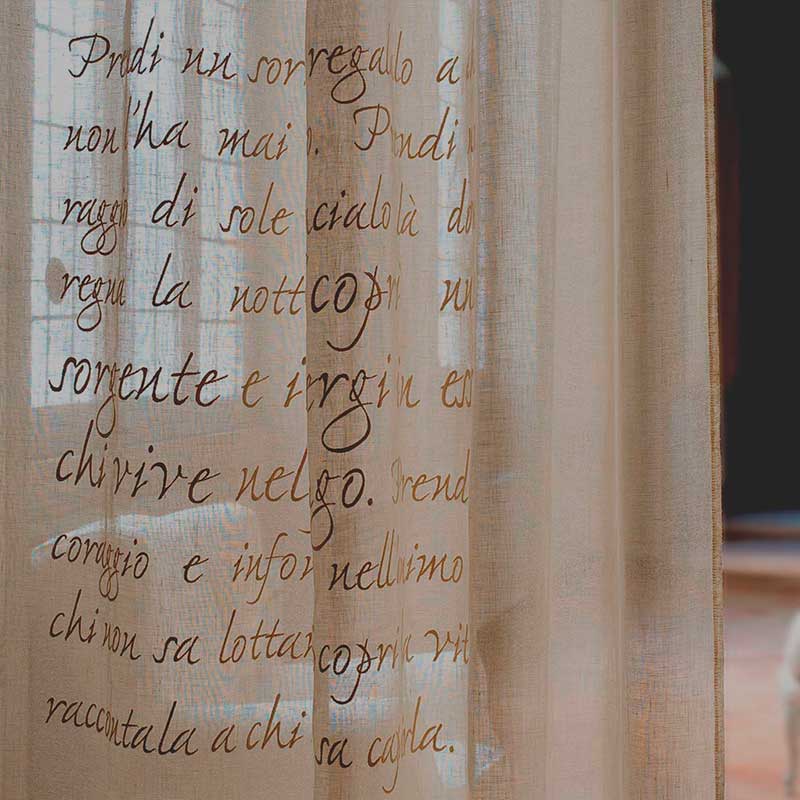 Prendi un sorregallo a
non l'ha mai . Prendi
raggio di sole cialo là do
regna la nott copri un
sorgente e i rgi in ess
chi vive nel go. Prend
coraggio e infon nell'animo
chi non sa lottar copri la vit
raccontala a chi sa capirla.